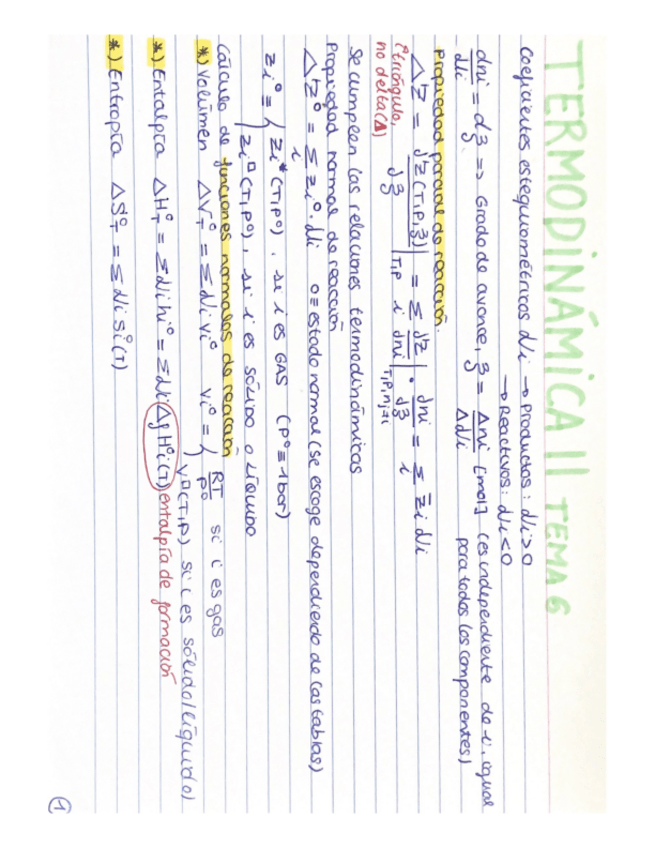 TERMODINÁMICA II TEMA 6
Coeficientes estequiométricos νi → Productos: νi > 0
→ Reactivos: νi < 0
dni/νi = dξ => Grado de avance, ξ = Δni/Δνi [mol] (es independiente de i, igual para todos los componentes)
Propiedad parcial de reacción.
△Z = dZ(T,P,ξ)/dξ |T,P = Σi dZ/dni |T,P,nj≠i · dni/dξ = Σi z̄i νi
(triángulo, no delta (Δ)
Se cumplen las relaciones termodinámicas
Propiedad normal de reacción
△Z° = Σi zi° · νi o ≡ estado normal (se escoge dependiendo de las tablas)
zi° = { zi*(T,P°), si i es GAS (P° = 1bar)
zi□(T,P°), si i es sólido o líquido
Cálculo de funciones normales de reacción
*) Volumen △VT° = Σ νi vi° vi° = { RT/P° si i es gas
v□(T,P) si i es sólido/líquido
*) Entalpía △HT° = Σ νi hi° = Σ νi △f H°i(T) entalpía de formación
*) Entropía △S°T = Σ νi si°(T)
1